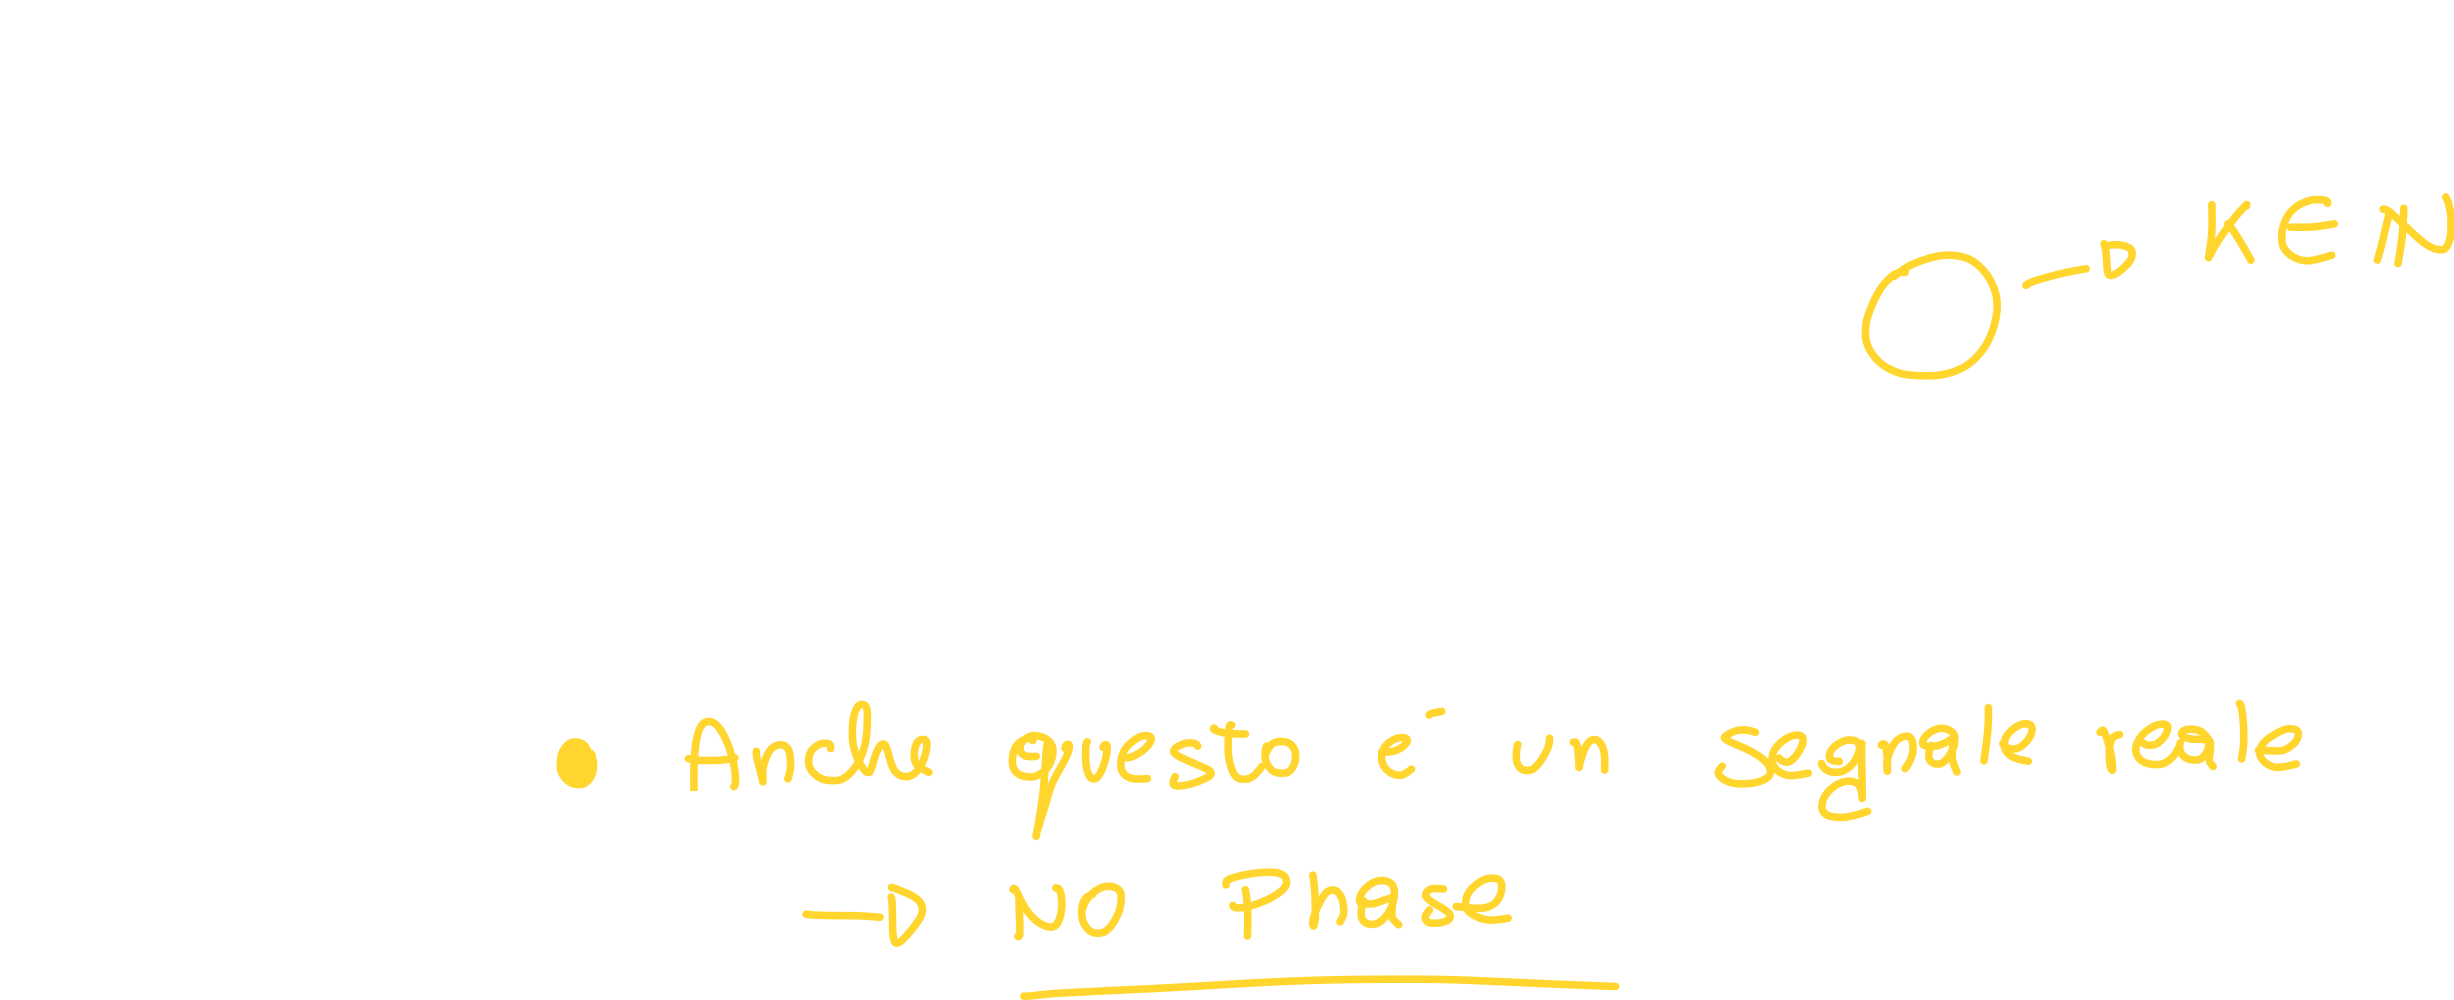 KEN
• Anche questo è un segnale reale
→ NO Phase